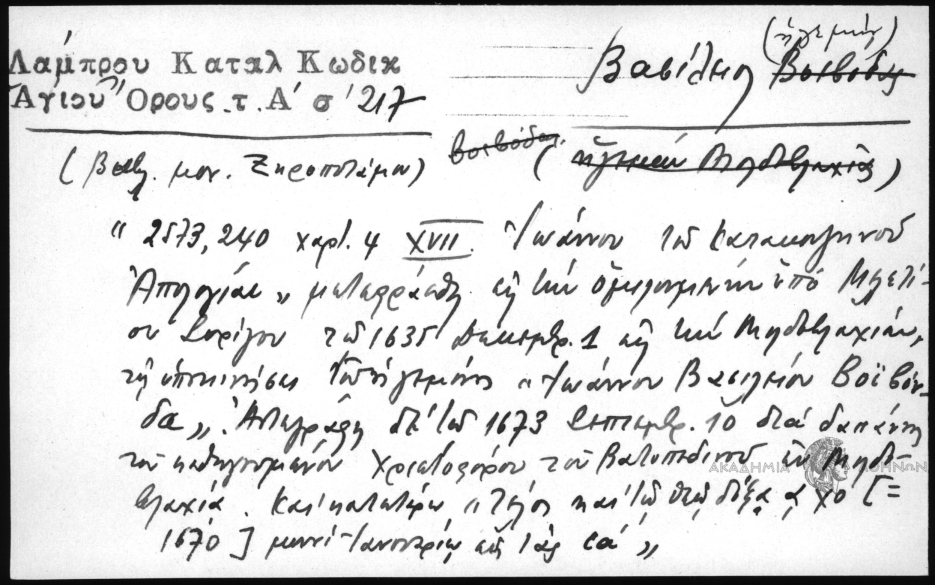 Λάμπρου Καταλ Κωδικ
Ἁγίου Ὄρους τ. Α' σ' 217
(ἡγεμών)
Βασίλειος Βοεβόδας
(Βιβλ. μον. Ξηροποτάμου)
βοεβόδας (ἡγεμών Μολδοβλαχίας)
" 2573, 240 χαρτ. 4 XVII. Ἰωάννου τοῦ Κατακουζηνοῦ
Ἀπολογίαι „ μετεφράσθη εἰς τὴν ὁμιλουμένην ὑπό Μελετί-
ου Συρίγου τῷ 1635 Δεκεμβρ. 1 εἰς τὴν Μολδοβλαχίαν,
τῇ ὑποκινήσει τοῦ ἡγεμόνος „ Ἰωάννου Βασιλείου Βοϊβόν-
δα „. Ἀντεγράφη δὲ τῷ 1673 Σεπτεμβρ. 10 διά δαπάνης
τοῦ καθηγουμένου Χριστοφόρου τοῦ Βατοπεδινοῦ ἐν Μολδο-
βλαχίᾳ. Καί κατωτέρω „ Τέλος καί τῷ θεῷ δόξα ͵αχο [=
1670] μηνί Ἰανουαρίῳ εἰς τάς ια' „
ΑΚΑΔΗΜΙΑ ΑΘΗΝΩΝ